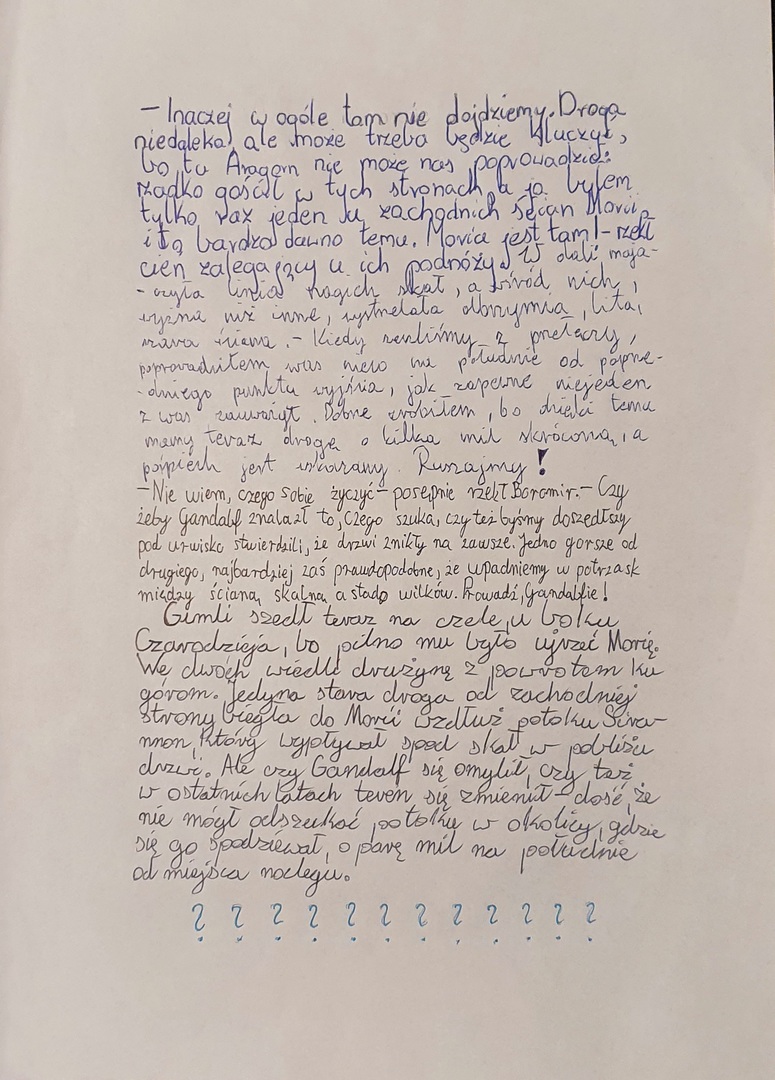 – Inaczej w ogóle tam nie dojdziemy. Droga
niedaleka, ale może trzeba będzie kluczyć,
bo tu Aragorn nie może nas poprowadzić:
rzadko gościł w tych stronach, a ja byłem
tylko raz jeden u zachodnich ścian Morii,
i to bardzo dawno temu. Moria jest tam! – rzekł
cień zalegający u ich podnóży. W dali maja-
-czyła linia nagich skał, a wśród nich,
wyższa niż inne, wystrzelała olbrzymia, lita,
szara ściana. – Kiedy zeszliśmy z przełęczy,
poprowadziłem was nieco na południe od poprze-
-dniego punktu wyjścia, jak zapewne niejeden
z was zauważył. Dobrze zrobiłem, bo dzięki temu
mamy teraz drogę o kilka mil skróconą, a
pośpiech jest wskazany. Ruszajmy!
– Nie wiem, czego sobie życzyć – posępnie rzekł Boromir. – Czy
żeby Gandalf znalazł to, czego szuka, czy też byśmy doszedłszy
pod urwisko stwierdzili, że drzwi znikły na zawsze. Jedno gorsze od
drugiego, najbardziej zaś prawdopodobne, że wpadniemy w potrzask
między ścianą skalną a stado wilków. Prowadź, Gandalfie!
Gimli szedł teraz na czele, u boku
Czarodzieja, bo pilno mu było ujrzeć Morię.
We dwóch wiedli drużynę z powrotem ku
górom. Jedyna stara droga od zachodniej
strony biegła do Morii wzdłuż potoku Sira-
nnon, który wypływał spod skał w pobliżu
drzwi. Ale czy Gandalf się omylił, czy też
w ostatnich latach teren się zmienił – dość, że
nie mógł odszukać potoku w okolicy, gdzie
się go spodziewał, o parę mil na południe
od miejsca noclegu.
? ? ? ? ? ? ? ? ? ? ? ?